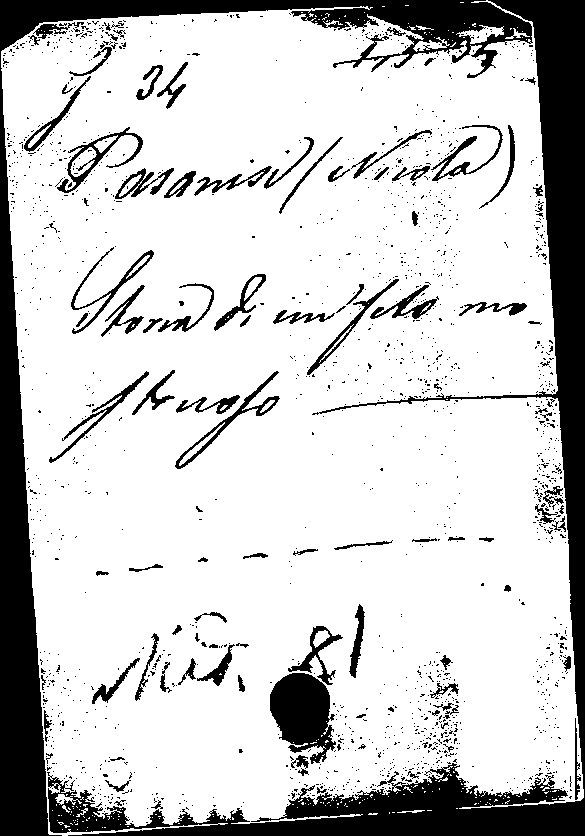 J. 34
1, 5. 35
Pasanisi (Nicola)
Storia di un feto mo-
struoso
81